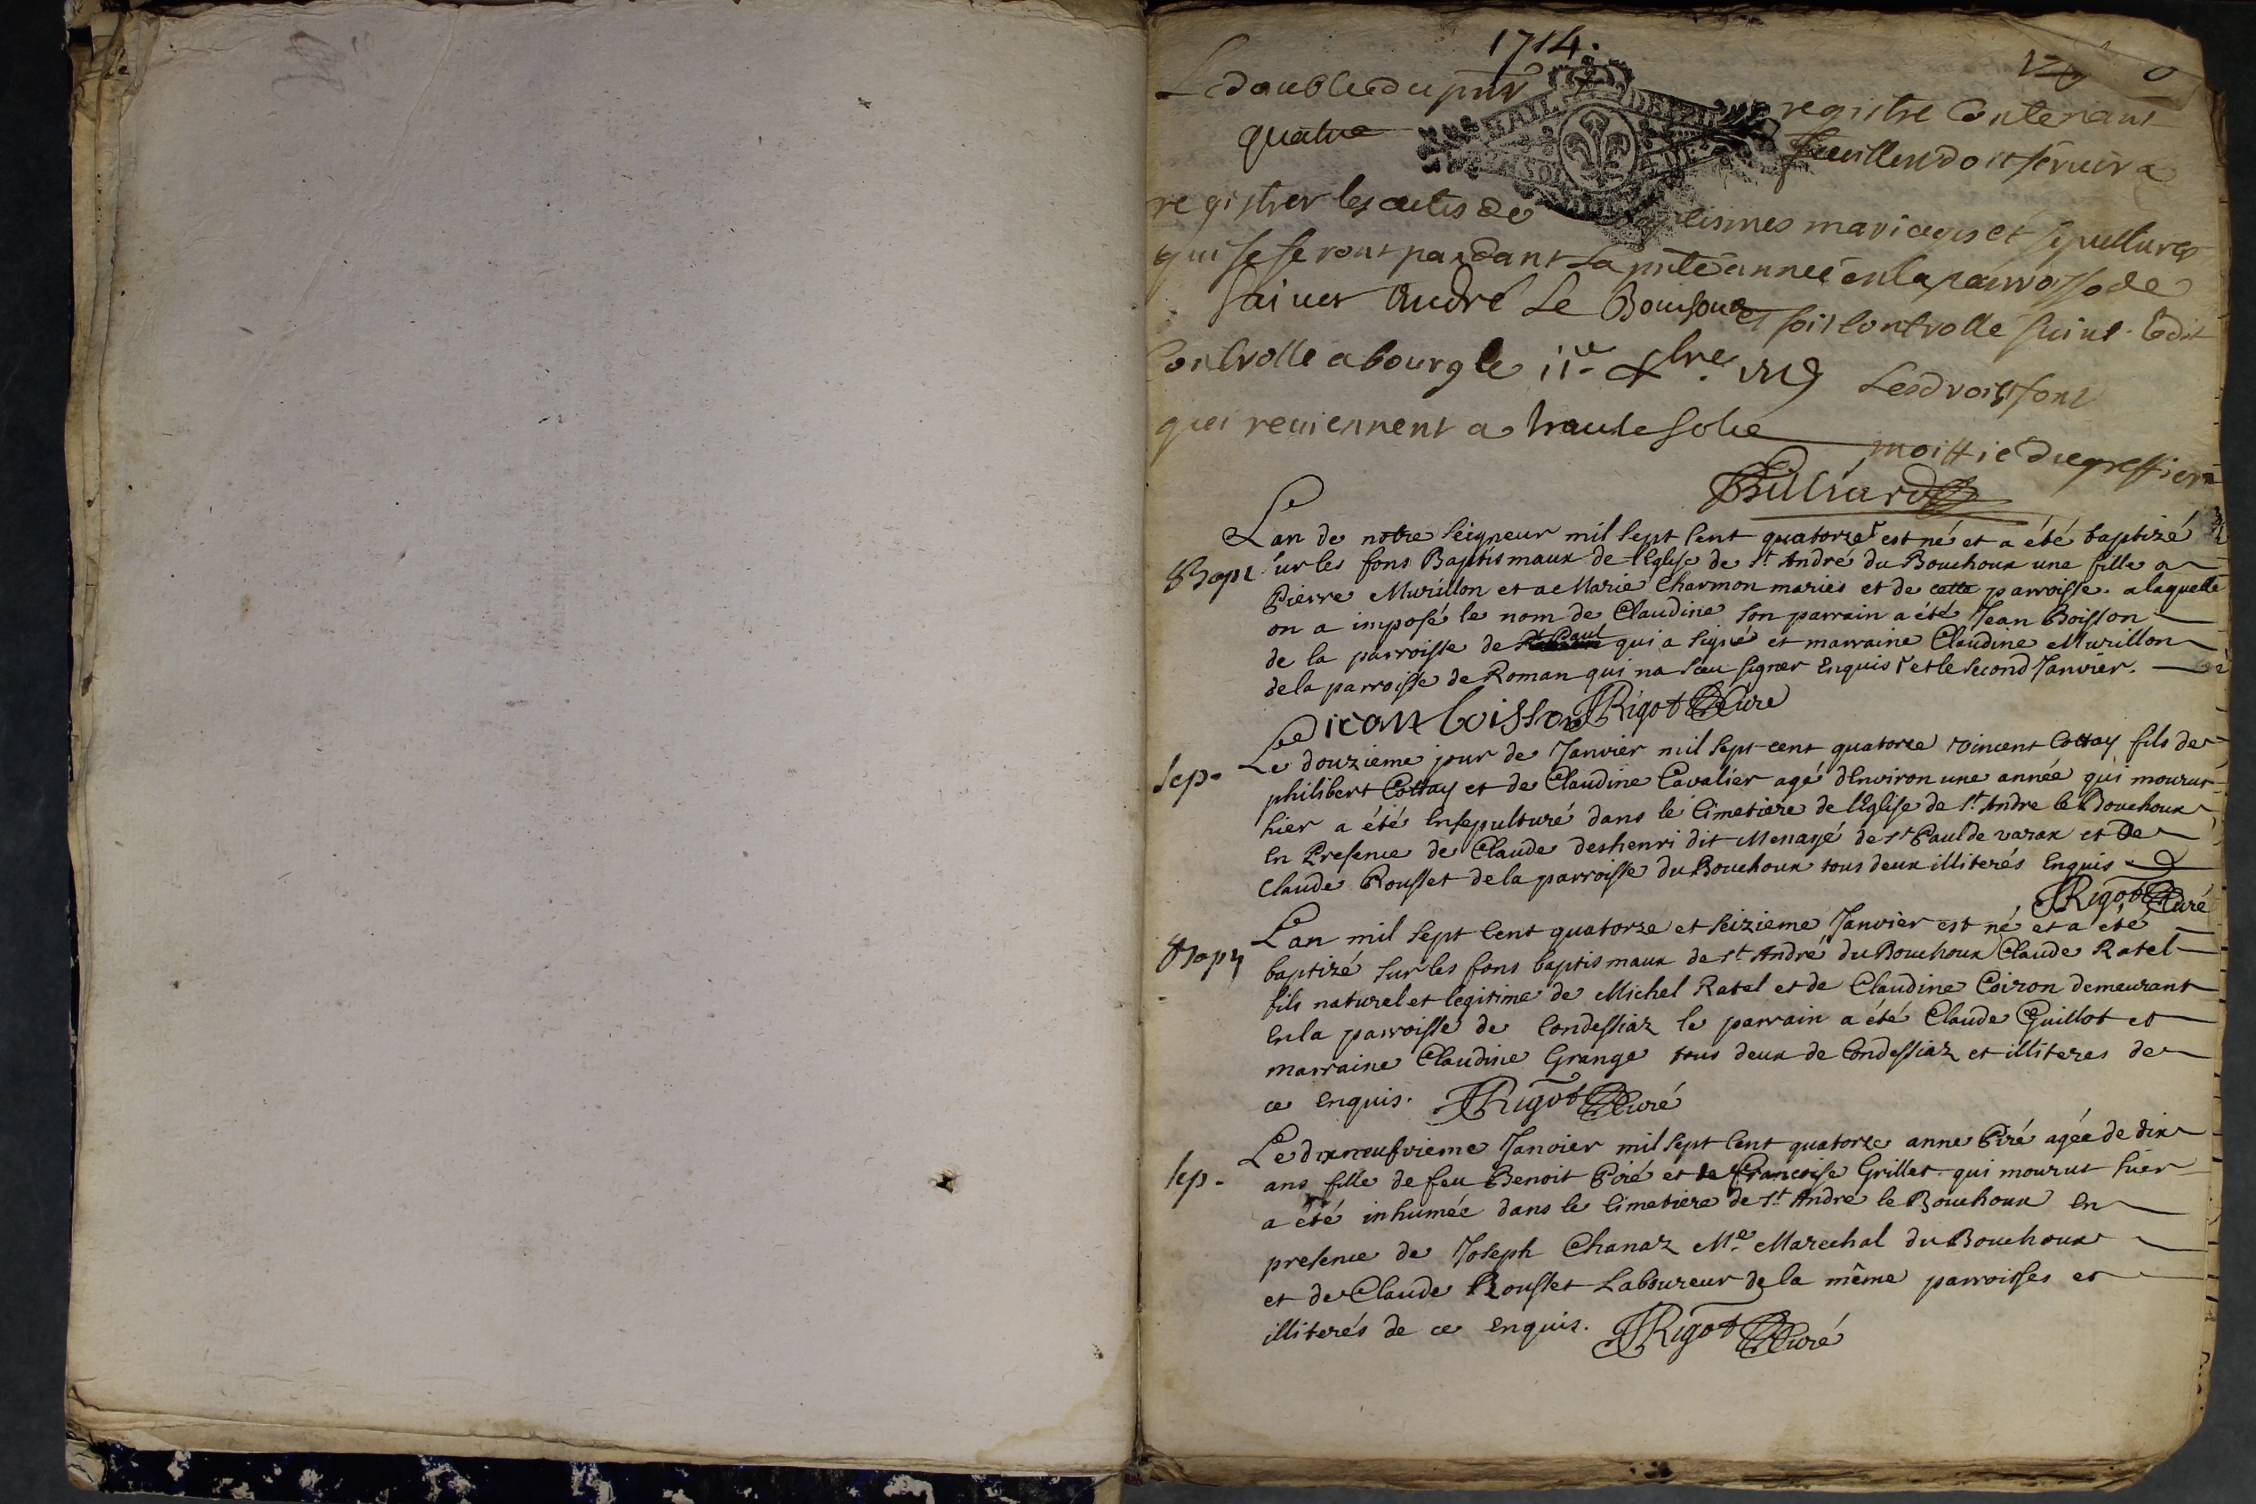 1714.
Le double du pnt registre Contenant
quatre feuillets doit servir a
registrer les actes de baptismes mariages et sepultures
qui se feront pandant la pnte année en la parroisse de
Saint André Le Bouchoux soit controlle suivt. Ledit
Controlle a bourg le 11e Xbre Les droits sont
qui reviennent a trante sols moittié du greffier
Billiard
L'an de notre Seigneur mil sept Cent quatorze est né et a été baptizé
Bapt sur les fons Baptismaux de l'Eglise de St André du Bouchoux une fille a
Pierre Murillon et a Marie Charmon mariés et de cette parroisse. a laquelle
on a imposé le nom de Claudine son parrain a été Jean Boisson
de la parroisse de St Paul qui a signé et marraine Claudine Murillon
de la parroisse de Roman qui na sceu signer Enquis et le second Janvier.
jean boisson JRigot Curé
Sep. Le douzieme jour de Janvier mil sept cent quatorze vincent Cottay fils de
philibert Cottay et de Claudine Cavalier agé d'Environ une année qui mourut
hier a été Ensepulturé dans le Cimetiere de l'Eglise de St. Andre le Bouchoux
En Presence de Claude deshenri dit Menayé de St Paul de varax et De
Claude Rousset de la parroisse du Bouchoux tous deux illiterés Enquis
JRigot Curé
L'an mil sept Cent quatorze et seizieme Janvier est né et a été
Bapt baptizé sur les fons baptismaux de St André du Bouchoux Claude Ratel
fils naturel et legitime de Michel Ratel et de Claudine Coiron demeurant
En la parroisse de Condessiaz le parrain a été Claude Guillot et
marraine Claudine Grange tous deux de Condessiaz et illiteres de
ce enquis. JRigot Curé
Le dixneufvieme Janvier mil sept Cent quatorze anne Piré agée de dix
Sep. ans fille de feu Benoit Piré et de Francoise Grillet qui mourut hier
a été inhumée dans le Cimetiere de St. Andre le Bouchoux En
presence de Joseph Chanaz Me. Marechal du Bouchoux
et de Claude Rousset Laboureur de la même parroisses et
illiterés de ce enquis. JRigot Curé